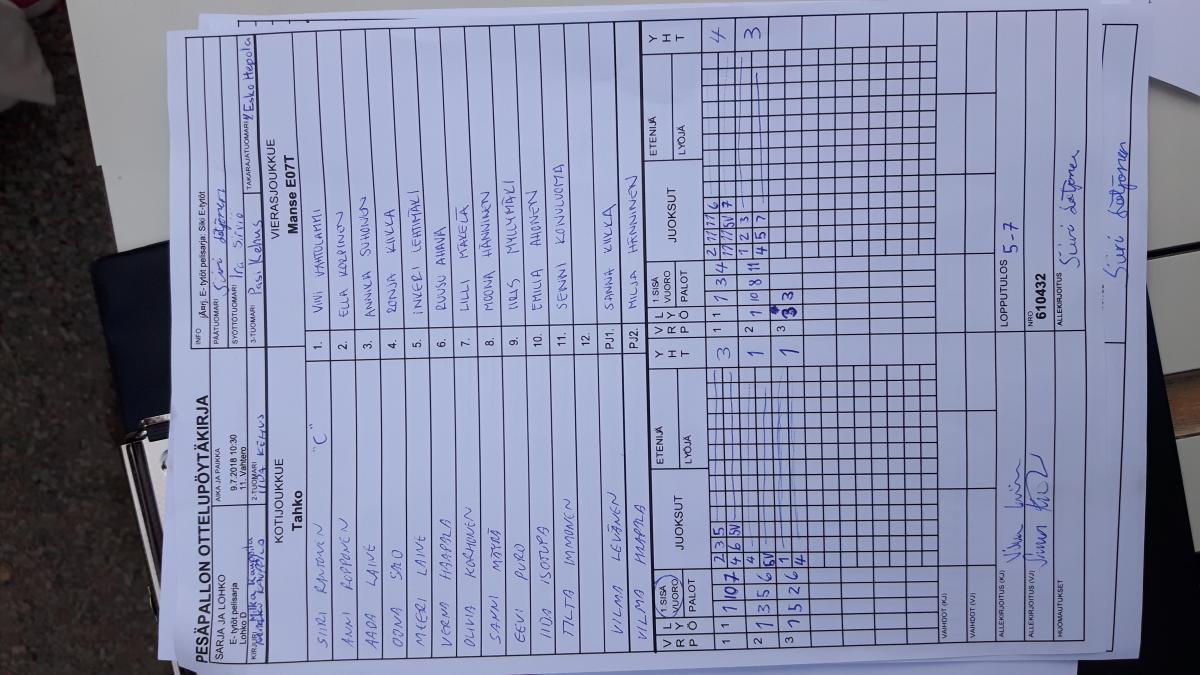 PESÄPALLON OTTELUPÖYTÄKIRJA
INFO jÄrrj. E- tytöt pelisarja: Siki E-tytöt
SARJA JA LOHKO
E- tytöt pelisarja
Lohko D
AIKA JA PAIKKA
9.7.2018 10:30
11. Vahtero
PÄÄTUOMARI Siiri
SYÖTTÖTUOMARI Ira Sirvio
KIRJURI
2-TUOMARI IIDA KEHUS
3-TUOMARI Pasi Kehus
TAKARAJATUOMARI Esko Hepola
KOTIJOUKKUE
Tahko
VIERASJOUKKUE
Manse E07T
SIIRI RANTONEN "C"
1. VIVI VAHTOLAMMI
ANNI ROPPONEN
2. ELLA KORPINEN
AADA LAINE
3. ANNIKA SUHONEN
OONA SALO
4. RONJA KIIKKA
MEERI LAINE
5. INKERI LEHTIMÄKI
VERNA HAAPALA
6. RUUSU AHAVA
OLIVIA KORHONEN
7. LILLI MÄKELÄ
SANNI MÖTTÄ
8. MOONA HÄNNINEN
EEVI PURO
9. IIRIS MYLLYMÄKI
IIDA ISOTUPA
10. EMILIA AHONEN
TILTA IMMONEN
11. SENNI KOIVULUOMA
12.
VILMA LEVÄNEN
PJ1. SANNA KIIKKA
VILMA HAAPALA
PJ2. MILJA HÄNNINEN
V R P
L Y Ö
1 SISÄ VUORO
PALOT
JUOKSUT
ETENIJÄ
LYÖJÄ
Y H T
V R P
L Y Ö
1 SISÄ VUORO
PALOT
JUOKSUT
ETENIJÄ
LYÖJÄ
Y H T
1 1 1 10 7 2 3 5 3
4 6 SV
1 1 1 3 4 2 11 11 6 4
11 11 SV 7
2 1 3 5 6 4 1
SV
2 1 10 8 11 1 2 3 3
4 5 7
3 1 5 2 6 1 1
4
3 3 3
VAIHDOT (KJ)
VAIHDOT (VJ)
ALLEKIRJOITUS (KJ)
LOPPUTULOS 5-7
ALLEKIRJOITUS (VJ)
NRO
610432
HUOMAUTUKSET
ALLEKIRJOITUS
Siiri
Siiri